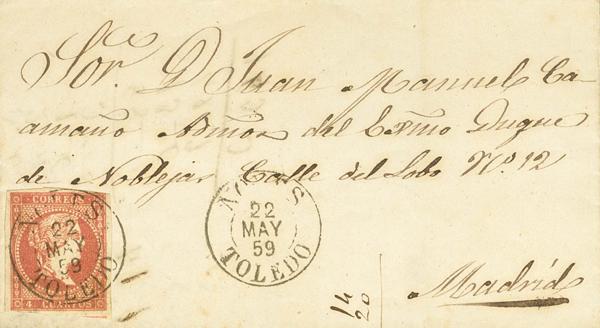 Sor. D Juan Manuel Ca-
amaño Admor del Exmo Duque
de Noblejas Calle del Lobo No. 12
Madrid
14
20
CORREOS
4 CUARTOS
22
MAY
59
TOLEDO
22
MAY
59
TOLEDO